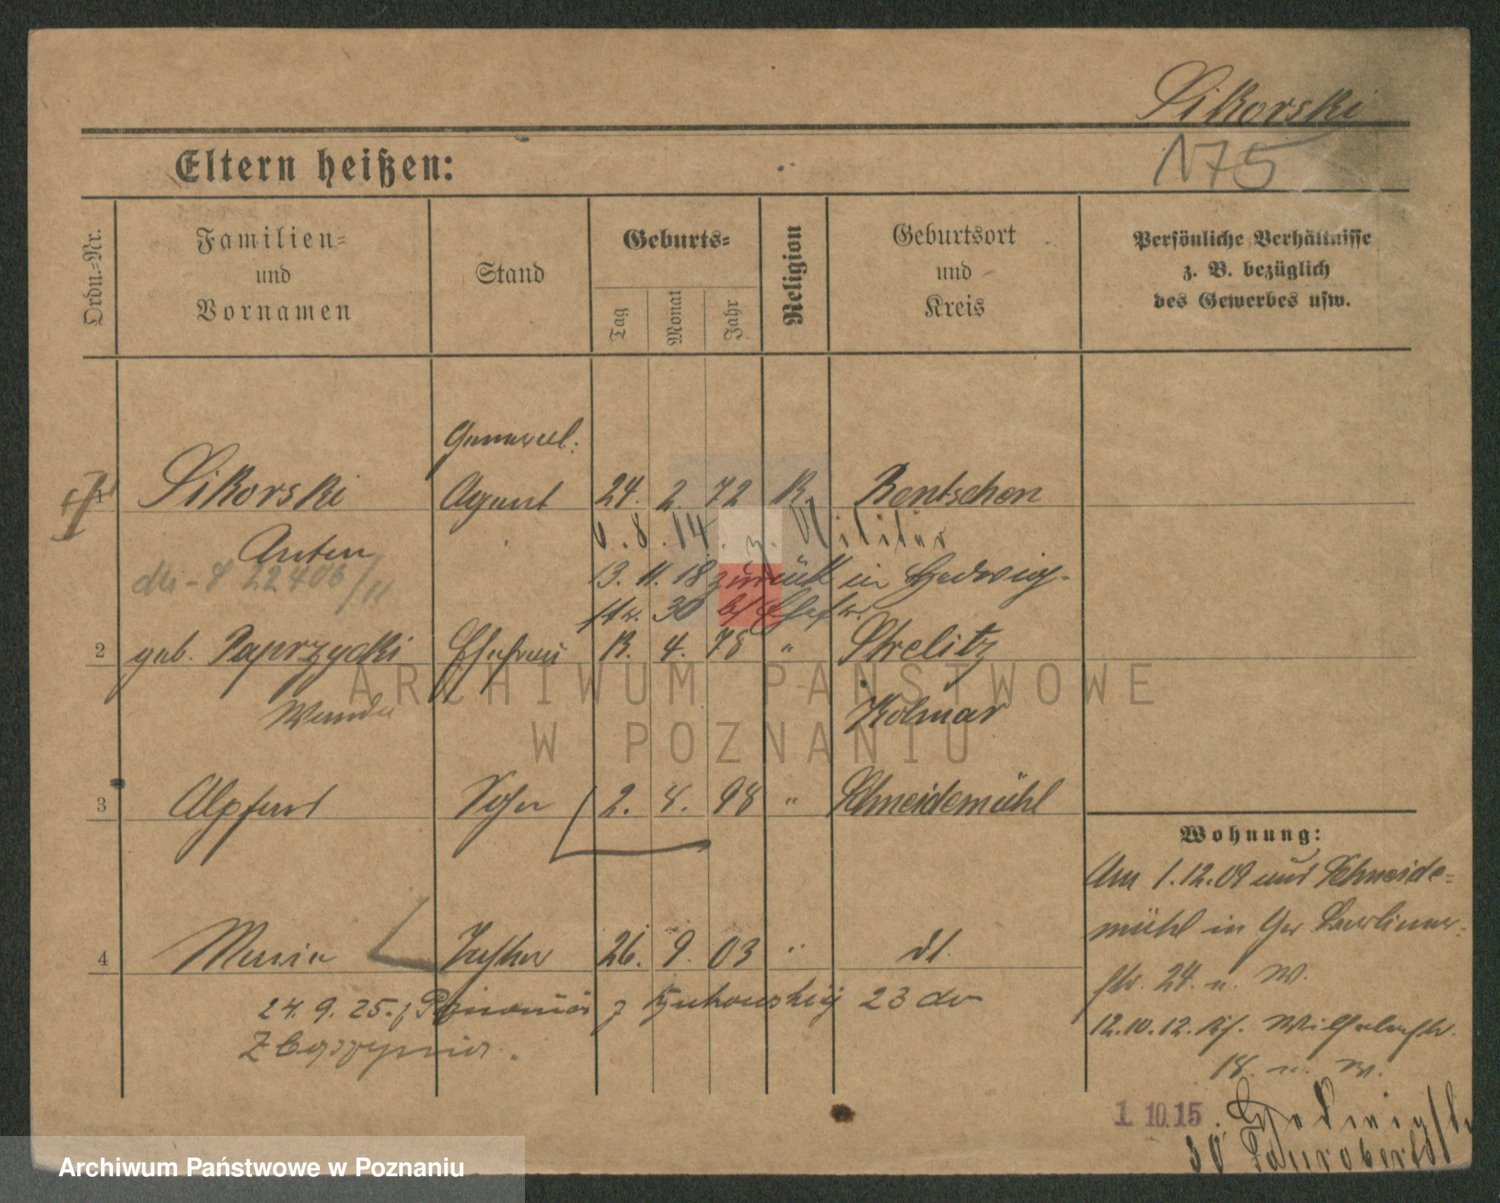 Sikorski
175
Eltern heißen:
Ordn.-Nr.
Familien-
und
Vornamen
Stand
Geburts-
Tag
Monat
Jahr
Religion
Geburtsort
und
Kreis
Persönliche Verhältnisse
z. B. bezüglich
des Gewerbes usw.
General.
1 Sikorski Agent 24. 2. 72 K Bentschen
Anton 8. 14. z. Militär
22406/11 13. 11. 18 zurück in Hedwig-
str. 30 b/ Ehefr.
2 geb. Paprzycki Ehefrau 13. 4. 78 " Strelitz
Wanda Kolmar
ARCHIWUM PAŃSTWOWE
W POZNANIU
3 Sohn 2. 8. 98 " Schneidemühl
4 Maria Tochter 26. 9. 03 " dt
24. 9. 25. 23 do
Zbąszynia.
Wohnung:
Am 1.12.09 aus Schneide-
mühl in Berliner-
str. 24. u. W.
12.10.12. Kf. Wilhelmstr.
18. u. W.
1. 10. 15. Hedwigstr
30
Archiwum Państwowe w Poznaniu